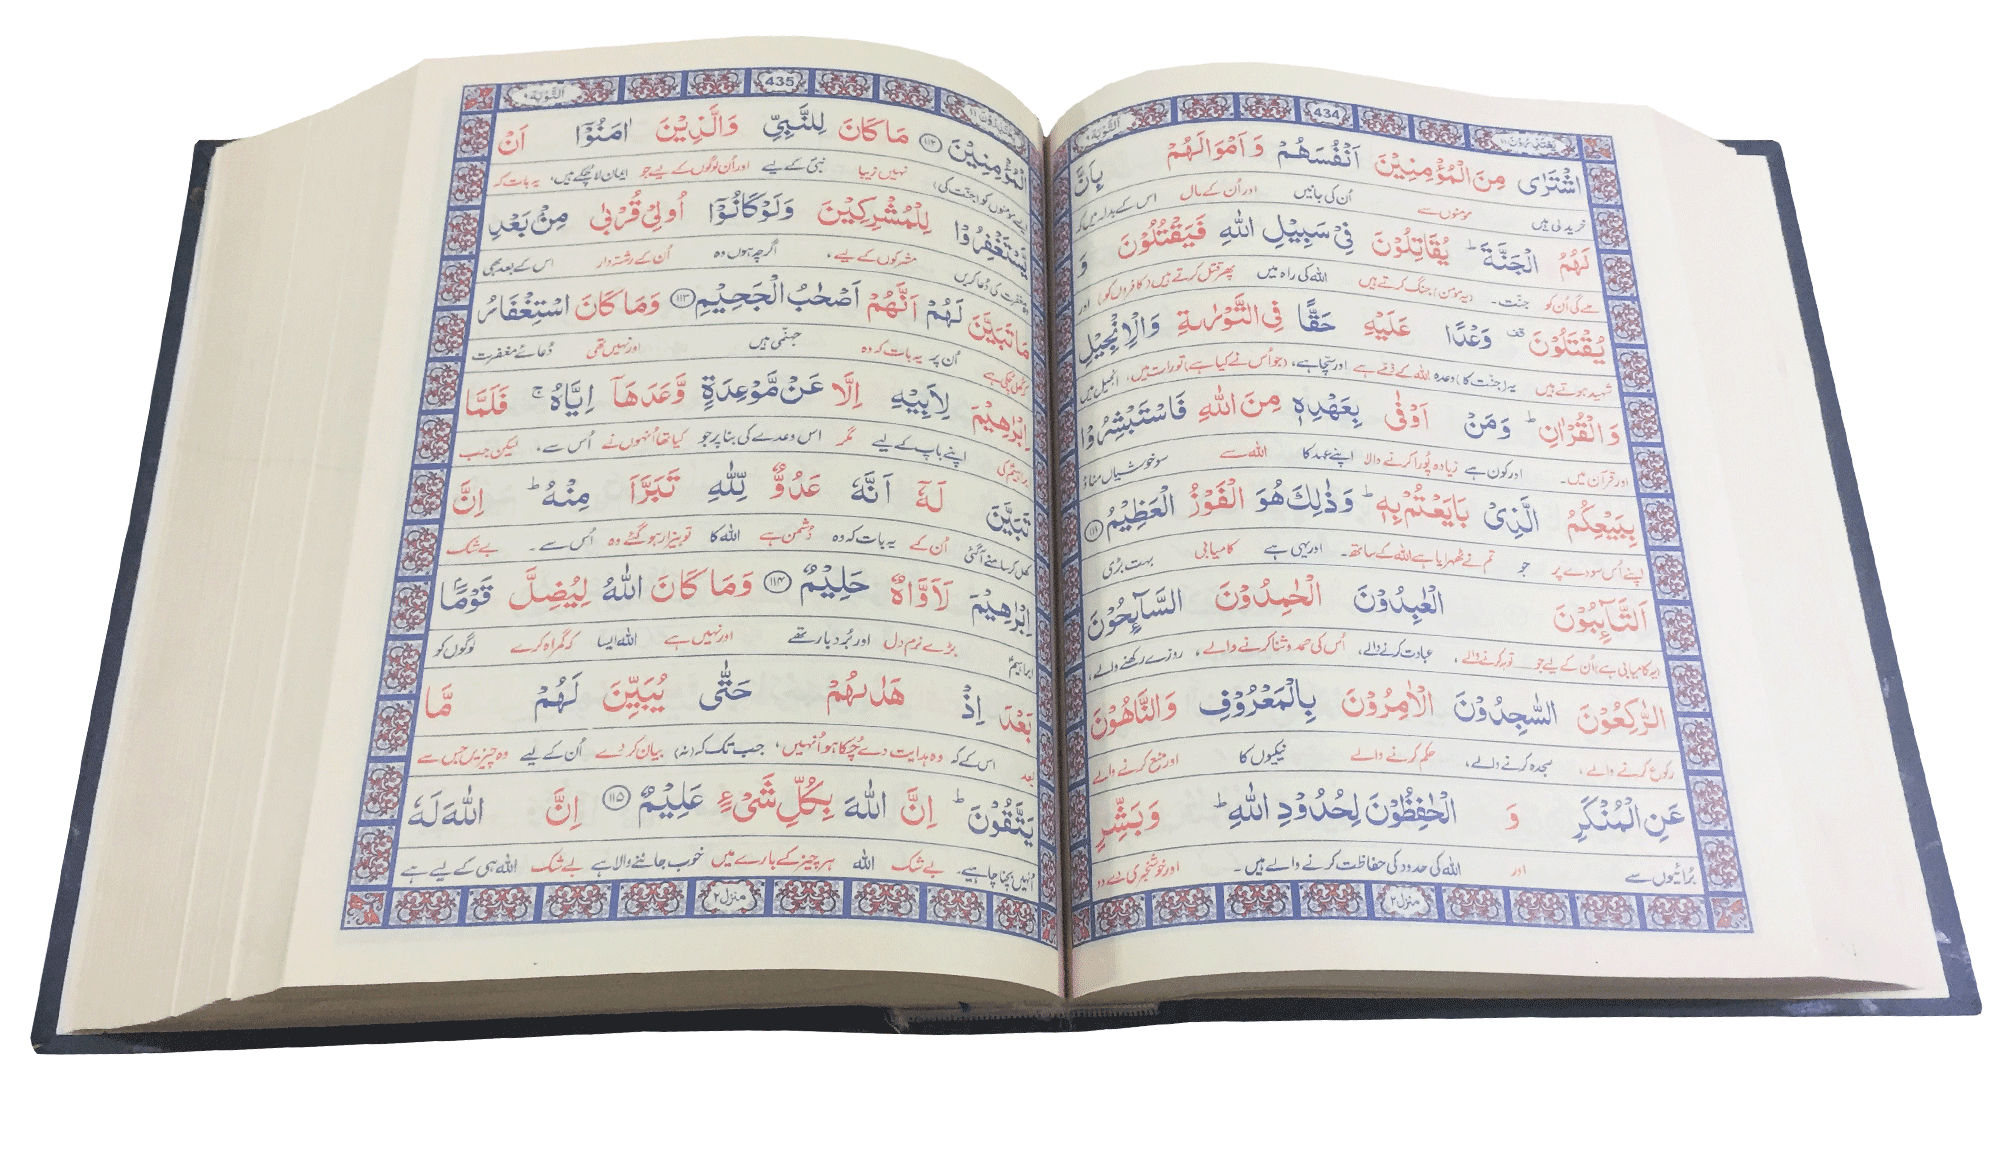 یعتذرون ۱۱ 434 التوبة ۹
اشْتَرٰى مِنَ الْمُؤْمِنِيْنَ اَنْفُسَهُمْ وَ اَمْوَالَهُمْ بِاَنَّ
خرید لی ہیں مومنوں سے اُن کی جانیں اور اُن کے مال اس کے بدلہ میں کہ
لَهُمُ الْجَنَّةَ ؕ يُقَاتِلُوْنَ فِيْ سَبِيْلِ اللّٰهِ فَيَقْتُلُوْنَ وَ
ملے گی اُن کو جنّت۔ (یہ مومن) جنگ کرتے ہیں اللہ کی راہ میں پھر قتل کرتے ہیں (کافروں کو) اور
يُقْتَلُوْنَ ۫ وَعْدًا عَلَيْهِ حَقًّا فِي التَّوْرٰىةِ وَالْاِنْجِيْلِ
شہید ہوتے ہیں یہ (جنّت کا) وعدہ اللہ کے ذمّے ہے اور سچّا ہے، (جو اُس نے کیا ہے) تورات میں، انجیل میں
وَالْقُرْاٰنِ ؕ وَمَنْ اَوْفٰى بِعَهْدِهٖ مِنَ اللّٰهِ فَاسْتَبْشِرُوْا
اور قرآن میں۔ اور کون ہے زیادہ پُورا کرنے والا اپنے عہد کا اللہ سے سو خوشیاں مناؤ
بِبَيْعِكُمُ الَّذِيْ بَايَعْتُمْ بِهٖ ؕ وَذٰلِكَ هُوَ الْفَوْزُ الْعَظِيْمُ ۱۱۱
اپنے اُس سودے پر جو تم نے ٹھہرایا ہے اللہ کے ساتھ۔ اور یہی ہے کامیابی بہت بڑی
اَلتَّآىِٕبُوْنَ الْعٰبِدُوْنَ الْحٰمِدُوْنَ السَّآىِٕحُوْنَ
(یہ کامیابی ہے) اُن کے لیے جو توبہ کرنے والے، عبادت کرنے والے، اُس کی حمد و ثنا کرنے والے، روزے رکھنے والے،
الرّٰكِعُوْنَ السّٰجِدُوْنَ الْاٰمِرُوْنَ بِالْمَعْرُوْفِ وَالنَّاهُوْنَ
رکوع کرنے والے، سجدہ کرنے والے، حکم کرنے والے نیکیوں کا اور منع کرنے والے
عَنِ الْمُنْكَرِ وَ الْحٰفِظُوْنَ لِحُدُوْدِ اللّٰهِ ؕ وَبَشِّرِ
بُرائیوں سے اور اللہ کی حدود کی حفاظت کرنے والے ہیں۔ اور خوشخبری دے دو
منزل ۲
435 التوبة ۹
الْمُؤْمِنِيْنَ ۱۱۲ مَا كَانَ لِلنَّبِيِّ وَالَّذِيْنَ اٰمَنُوْٓا اَنْ
ایسے مومنوں کو (جنّت کی) نہیں زیبا نبی کے لیے اور اُن لوگوں کے لیے جو ایمان لا چکے ہیں، یہ بات کہ
يَسْتَغْفِرُوْا لِلْمُشْرِكِيْنَ وَلَوْ كَانُوْٓا اُولِيْ قُرْبٰى مِنْۢ بَعْدِ
مغفرت کی دُعا کریں مشرکوں کے لیے، اگرچہ ہوں وہ اُن کے رشتہ دار اس کے بعد بھی
مَا تَبَيَّنَ لَهُمْ اَنَّهُمْ اَصْحٰبُ الْجَحِيْمِ ۱۱۳ وَمَا كَانَ اسْتِغْفَارُ
کہ کھل چکی ہے اُن پر یہ بات کہ وہ جہنّمی ہیں اور نہیں تھی دُعائے مغفرت
اِبْرٰهِيْمَ لِاَبِيْهِ اِلَّا عَنْ مَّوْعِدَةٍ وَّعَدَهَاۤ اِيَّاهُ ۚ فَلَمَّا
ابراہیمؑ کی اپنے باپ کے لیے مگر اس وعدے کی بنا پر جو کیا تھا اُنہوں نے اُس سے، لیکن جب
تَبَيَّنَ لَهٗۤ اَنَّهٗ عَدُوٌّ لِّلّٰهِ تَبَرَّاَ مِنْهُ ؕ اِنَّ
کھل کر سامنے آگئی اُن کے یہ بات کہ وہ دُشمن ہے اللہ کا تو بیزار ہو گئے وہ اُس سے۔ بے شک
اِبْرٰهِيْمَ لَاَوَّاهٌ حَلِيْمٌ ۱۱۴ وَمَا كَانَ اللّٰهُ لِيُضِلَّ قَوْمًۢا
ابراہیمؑ بڑے نرم دل اور بُردبار تھے اور نہیں ہے اللہ ایسا کہ گمراہ کرے لوگوں کو
بَعْدَ اِذْ هَدٰىهُمْ حَتّٰى يُبَيِّنَ لَهُمْ مَّا
بعد اس کے کہ وہ ہدایت دے چُکا ہو اُنہیں، جب تک کہ (نہ) بیان کر دے اُن کے لیے وہ چیزیں جن سے
يَتَّقُوْنَ ؕ اِنَّ اللّٰهَ بِكُلِّ شَيْءٍ عَلِيْمٌ ۱۱۵ اِنَّ اللّٰهَ لَهٗ
اُنہیں بچنا چاہیے۔ بے شک اللہ ہر چیز کے بارے میں خوب جاننے والا ہے بے شک اللہ ہی کے لیے ہے
منزل ۲